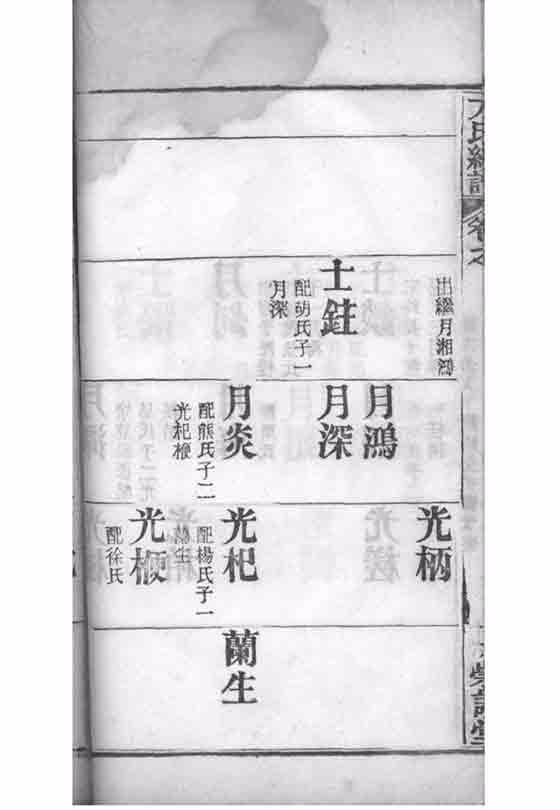 氏續譜
卷之
出繼月湘鴻
士鉒
配胡氏子一
月深
月鴻
月深
月炎
配熊氏子二
光杞楩
光柄
光杞
配楊氏子一
蘭生
光楩
配徐氏
蘭生